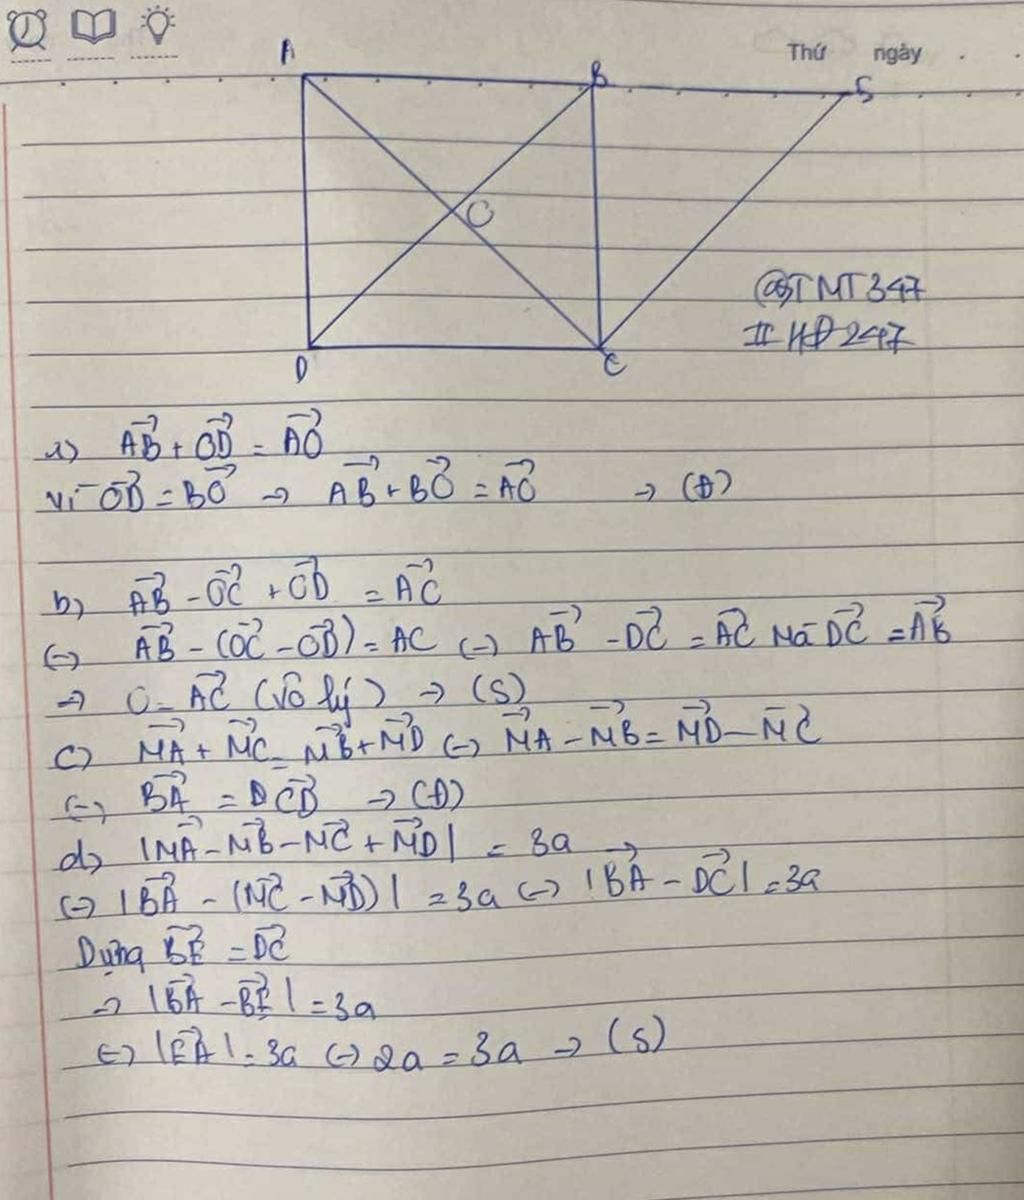 Thứ ngày
A
B
S
O
D
C
@TMT347
II HD 247
a) AB⃗ + OD⃗ = AO⃗
Vì OD⃗ = BO⃗ → AB⃗ + BO⃗ = AO⃗ → (Đ)
b) AB⃗ - OC⃗ + OD⃗ = AC⃗
(-) AB⃗ - (OC⃗ - OD⃗) = AC (-) AB⃗ - DC⃗ = AC⃗ Mà DC⃗ = AB⃗
→ O = AC⃗ (Vô lý) → (S)
c) MA⃗ + MC⃗ = MB⃗ + MD⃗ (-) MA⃗ - MB⃗ = MD⃗ - MC⃗
(-) BA⃗ = DCD⃗ → (Đ)
d) |MA⃗ - MB⃗ - MC⃗ + MD⃗| = 3a
(-) |BA⃗ - (MC⃗ - MD⃗)| = 3a (-) |BA⃗ - DC⃗| = 3a
Dựng BE⃗ = DC⃗
→ |BA⃗ - BE⃗| = 3a
(-) |EA⃗| = 3a (-) 2a = 3a → (S)